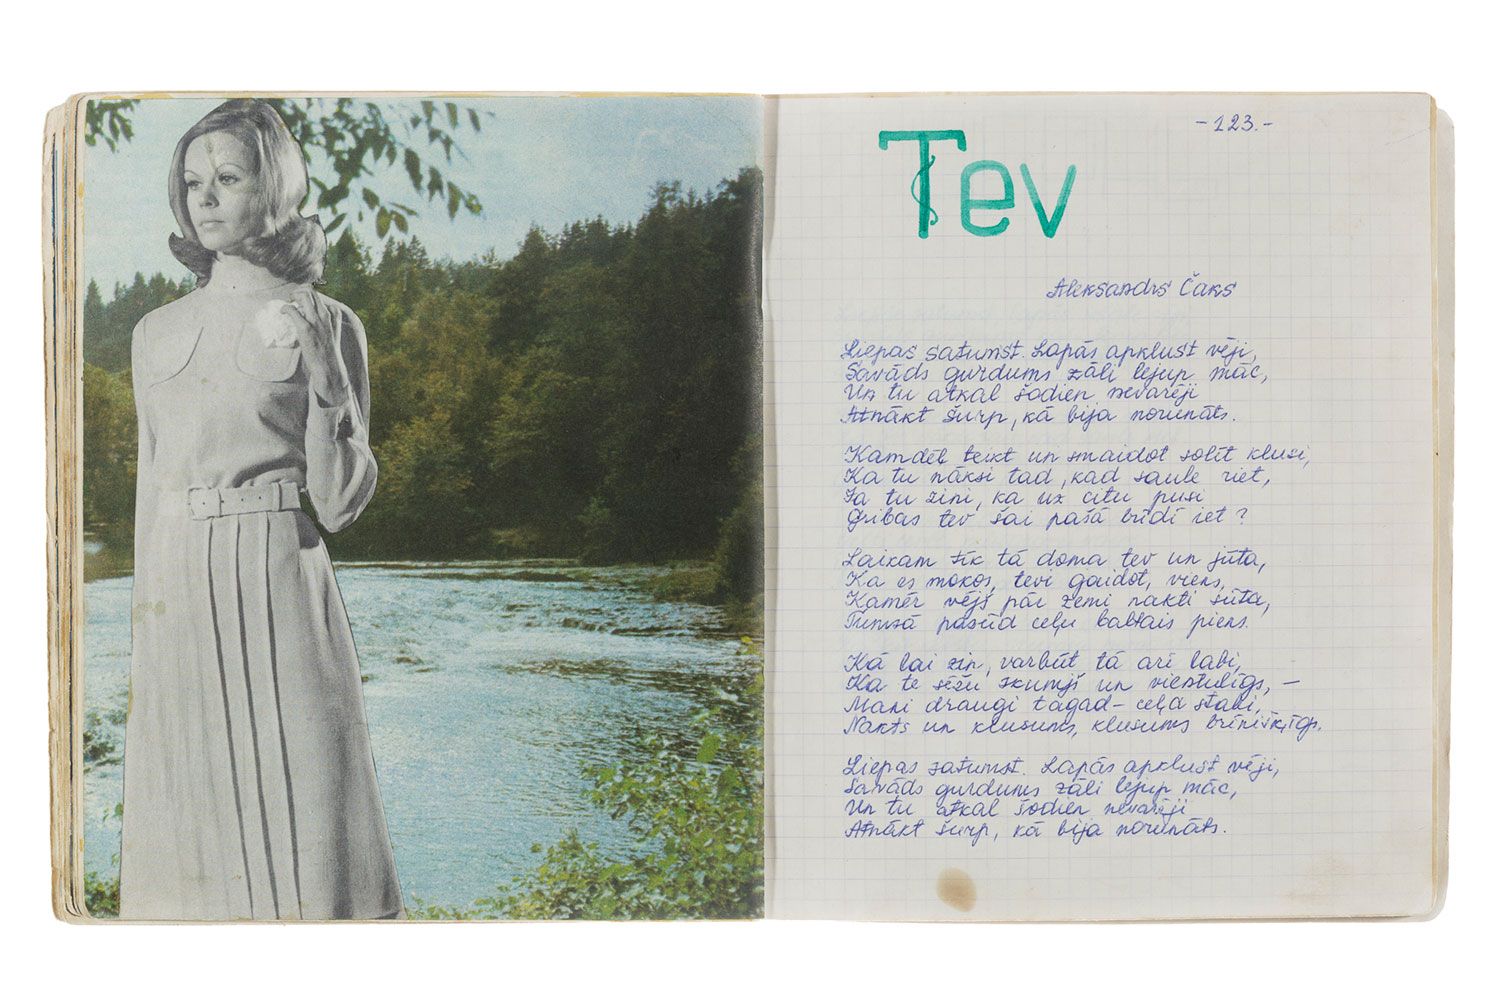 -123.-
Tev
Aleksandrs Čaks
Liepas satumst. Lapās apklust vēji,
Savāds gurdums zāli lejup māc,
Un tu atkal šodien nevarēji
Atnākt šurp, kā bija norunāts.
Kamdēļ teikt un smaidot solīt klusi,
Ka tu nāksi tad, kad saule riet,
Ja tu zini, ka uz citu pusi
Gribas tev šai pašā brīdī iet?
Laikam tīk tā doma tev un jūta,
Ka es mokos, tevi gaidot, viens,
Kamēr vējš pār zemi nakti sūta,
Tumsā pazūd ceļu baltais piens.
Kā lai zin, varbūt tā arī labi,
Ka te sēžu skumjš un vientulīgs, –
Mani draugi tagad – ceļa stabi,
Nakts un klusums, klusums brīnišķīgs.
Liepas satumst. Lapās apklust vēji,
Savāds gurdums zāli lejup māc,
Un tu atkal šodien nevarēji
Atnākt šurp, kā bija norunāts.